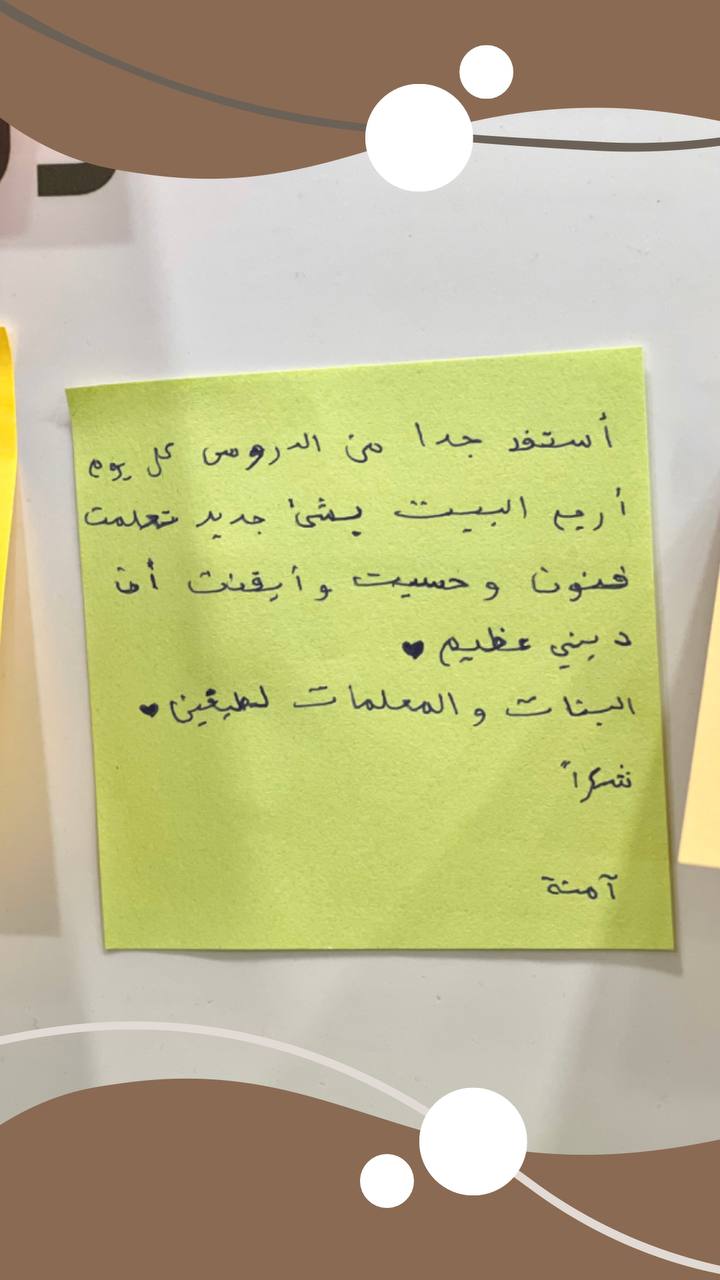 أستفد جدا من الدروس كل يوم
أرجع البيت بشئ جديد تعلمت
فنون و حسيت و أيقنت أن
ديني عظيم ♥
البنات و المعلمات لطيفين ♥
شكراً
آمنة